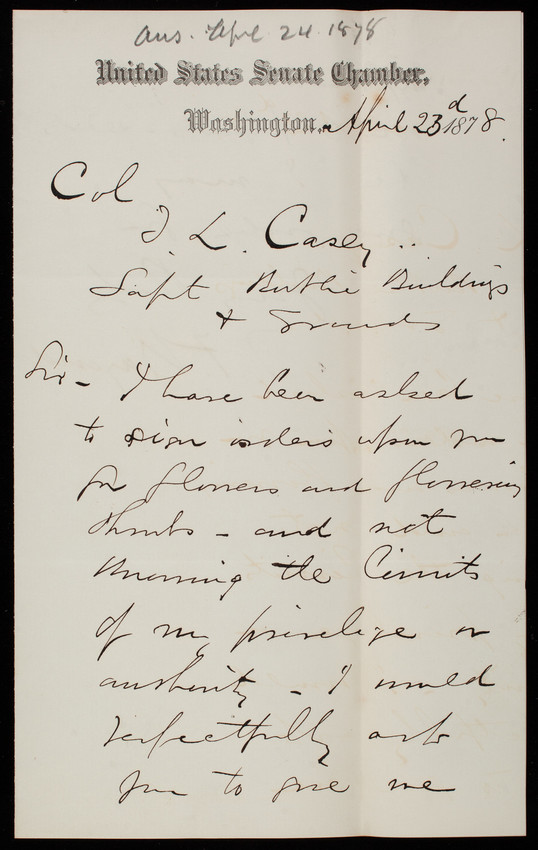 Ans. Apl 24 1878
United States Senate Chamber,
Washington, April 23d 1878.
Col
T. L. Casey..
Supt Public Buildings
& Grounds
Sir - I have been asked
to sign orders upon you
for flowers and flowering
shrubs - and not
knowing the limits
of my privelige or
authority - I would
respectfully ask
you to give me